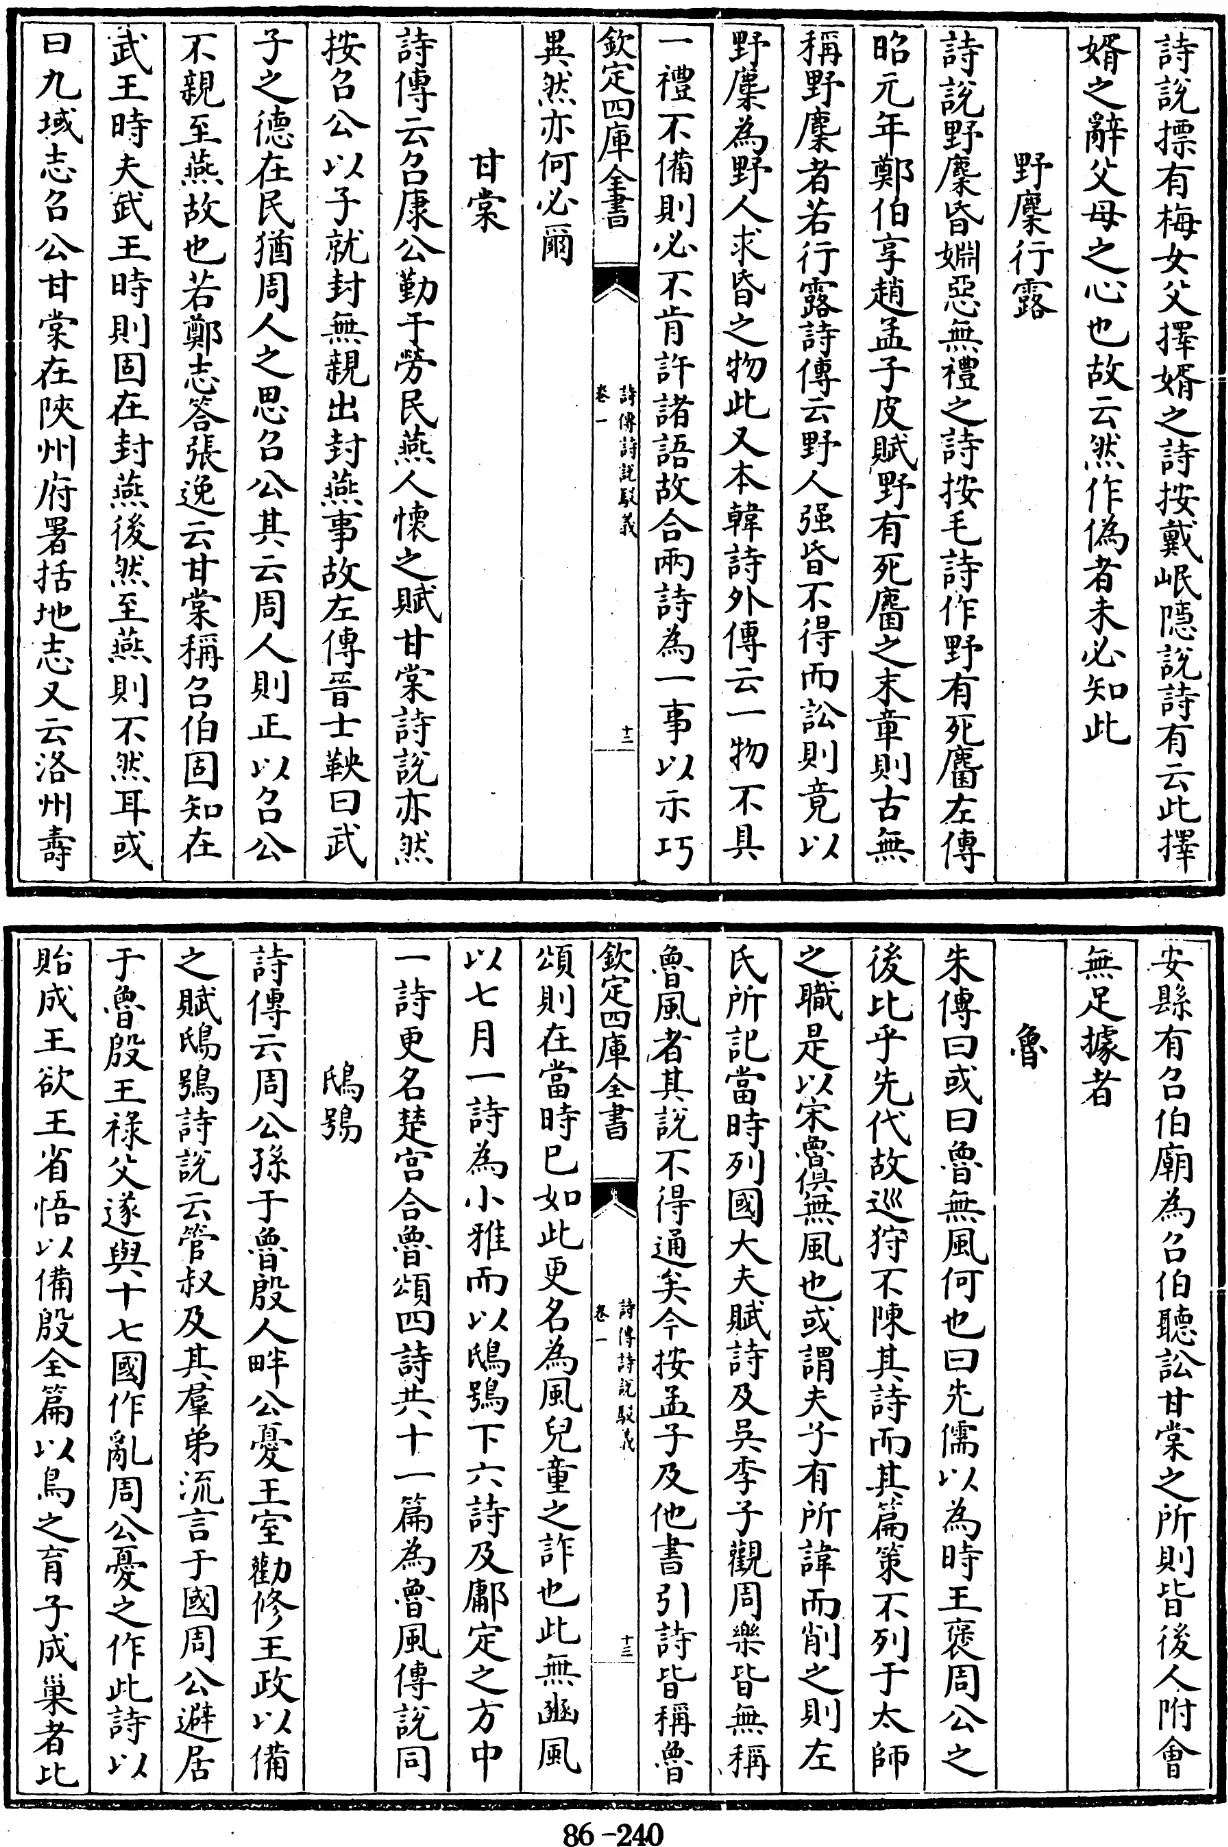 詩說摽有梅女父擇婿之詩按戴岷隱說詩有云此擇
婿之辭父母之心也故云然作偽者未必知此
野麕行露
詩說野麕昏婣惡無禮之詩按毛詩作野有死麕左傳
昭元年鄭伯享趙孟子皮賦野有死麕之末章則古無
稱野麕者若行露詩傳云野人强昏不得而訟則竟以
野麕為野人求昏之物此又本韓詩外傳云一物不具
一禮不備則必不肯許諸語故合兩詩為一事以示巧
欽定四庫全書
詩傳詩說駁義
卷一
十二
異然亦何必爾
甘棠
詩傳云召康公勤于勞民燕人懷之賦甘棠詩說亦然
按召公以子就封無親出封燕事故左傳晉士鞅曰武
子之德在民猶周人之思召公其云周人則正以召公
不親至燕故也若鄭志答張逸云甘棠稱召伯固知在
武王時夫武王時則固在封燕後然至燕則不然耳或
曰九域志召公甘棠在陜州府署括地志又云洛州壽
安縣有召伯廟為召伯聽訟甘棠之所則皆後人附會
無足據者
魯
朱傳曰或曰魯無風何也曰先儒以為時王褒周公之
後比乎先代故巡狩不陳其詩而其篇策不列于太師
之職是以宋魯俱無風也或謂夫子有所諱而削之則左
氏所記當時列國大夫賦詩及吳季子觀周樂皆無稱
魯風者其說不得通矣今按孟子及他書引詩皆稱魯
欽定四庫全書
詩傳詩說駁義
卷一
十三
頌則在當時已如此更名為風兒童之詐也此無豳風
以七月一詩為小雅而以鴟鴞下六詩及鄘定之方中
一詩更名楚宮合魯頌四詩共十一篇為魯風傳說同
鴟鴞
詩傳云周公孫于魯殷人畔公憂王室勸修王政以備
之賦鴟鴞詩說云管叔及其羣弟流言于國周公避居
于魯殷王祿父遂與十七國作亂周公憂之作此詩以
貽成王欲王省悟以備殷全篇以鳥之育子成巢者比
86-240